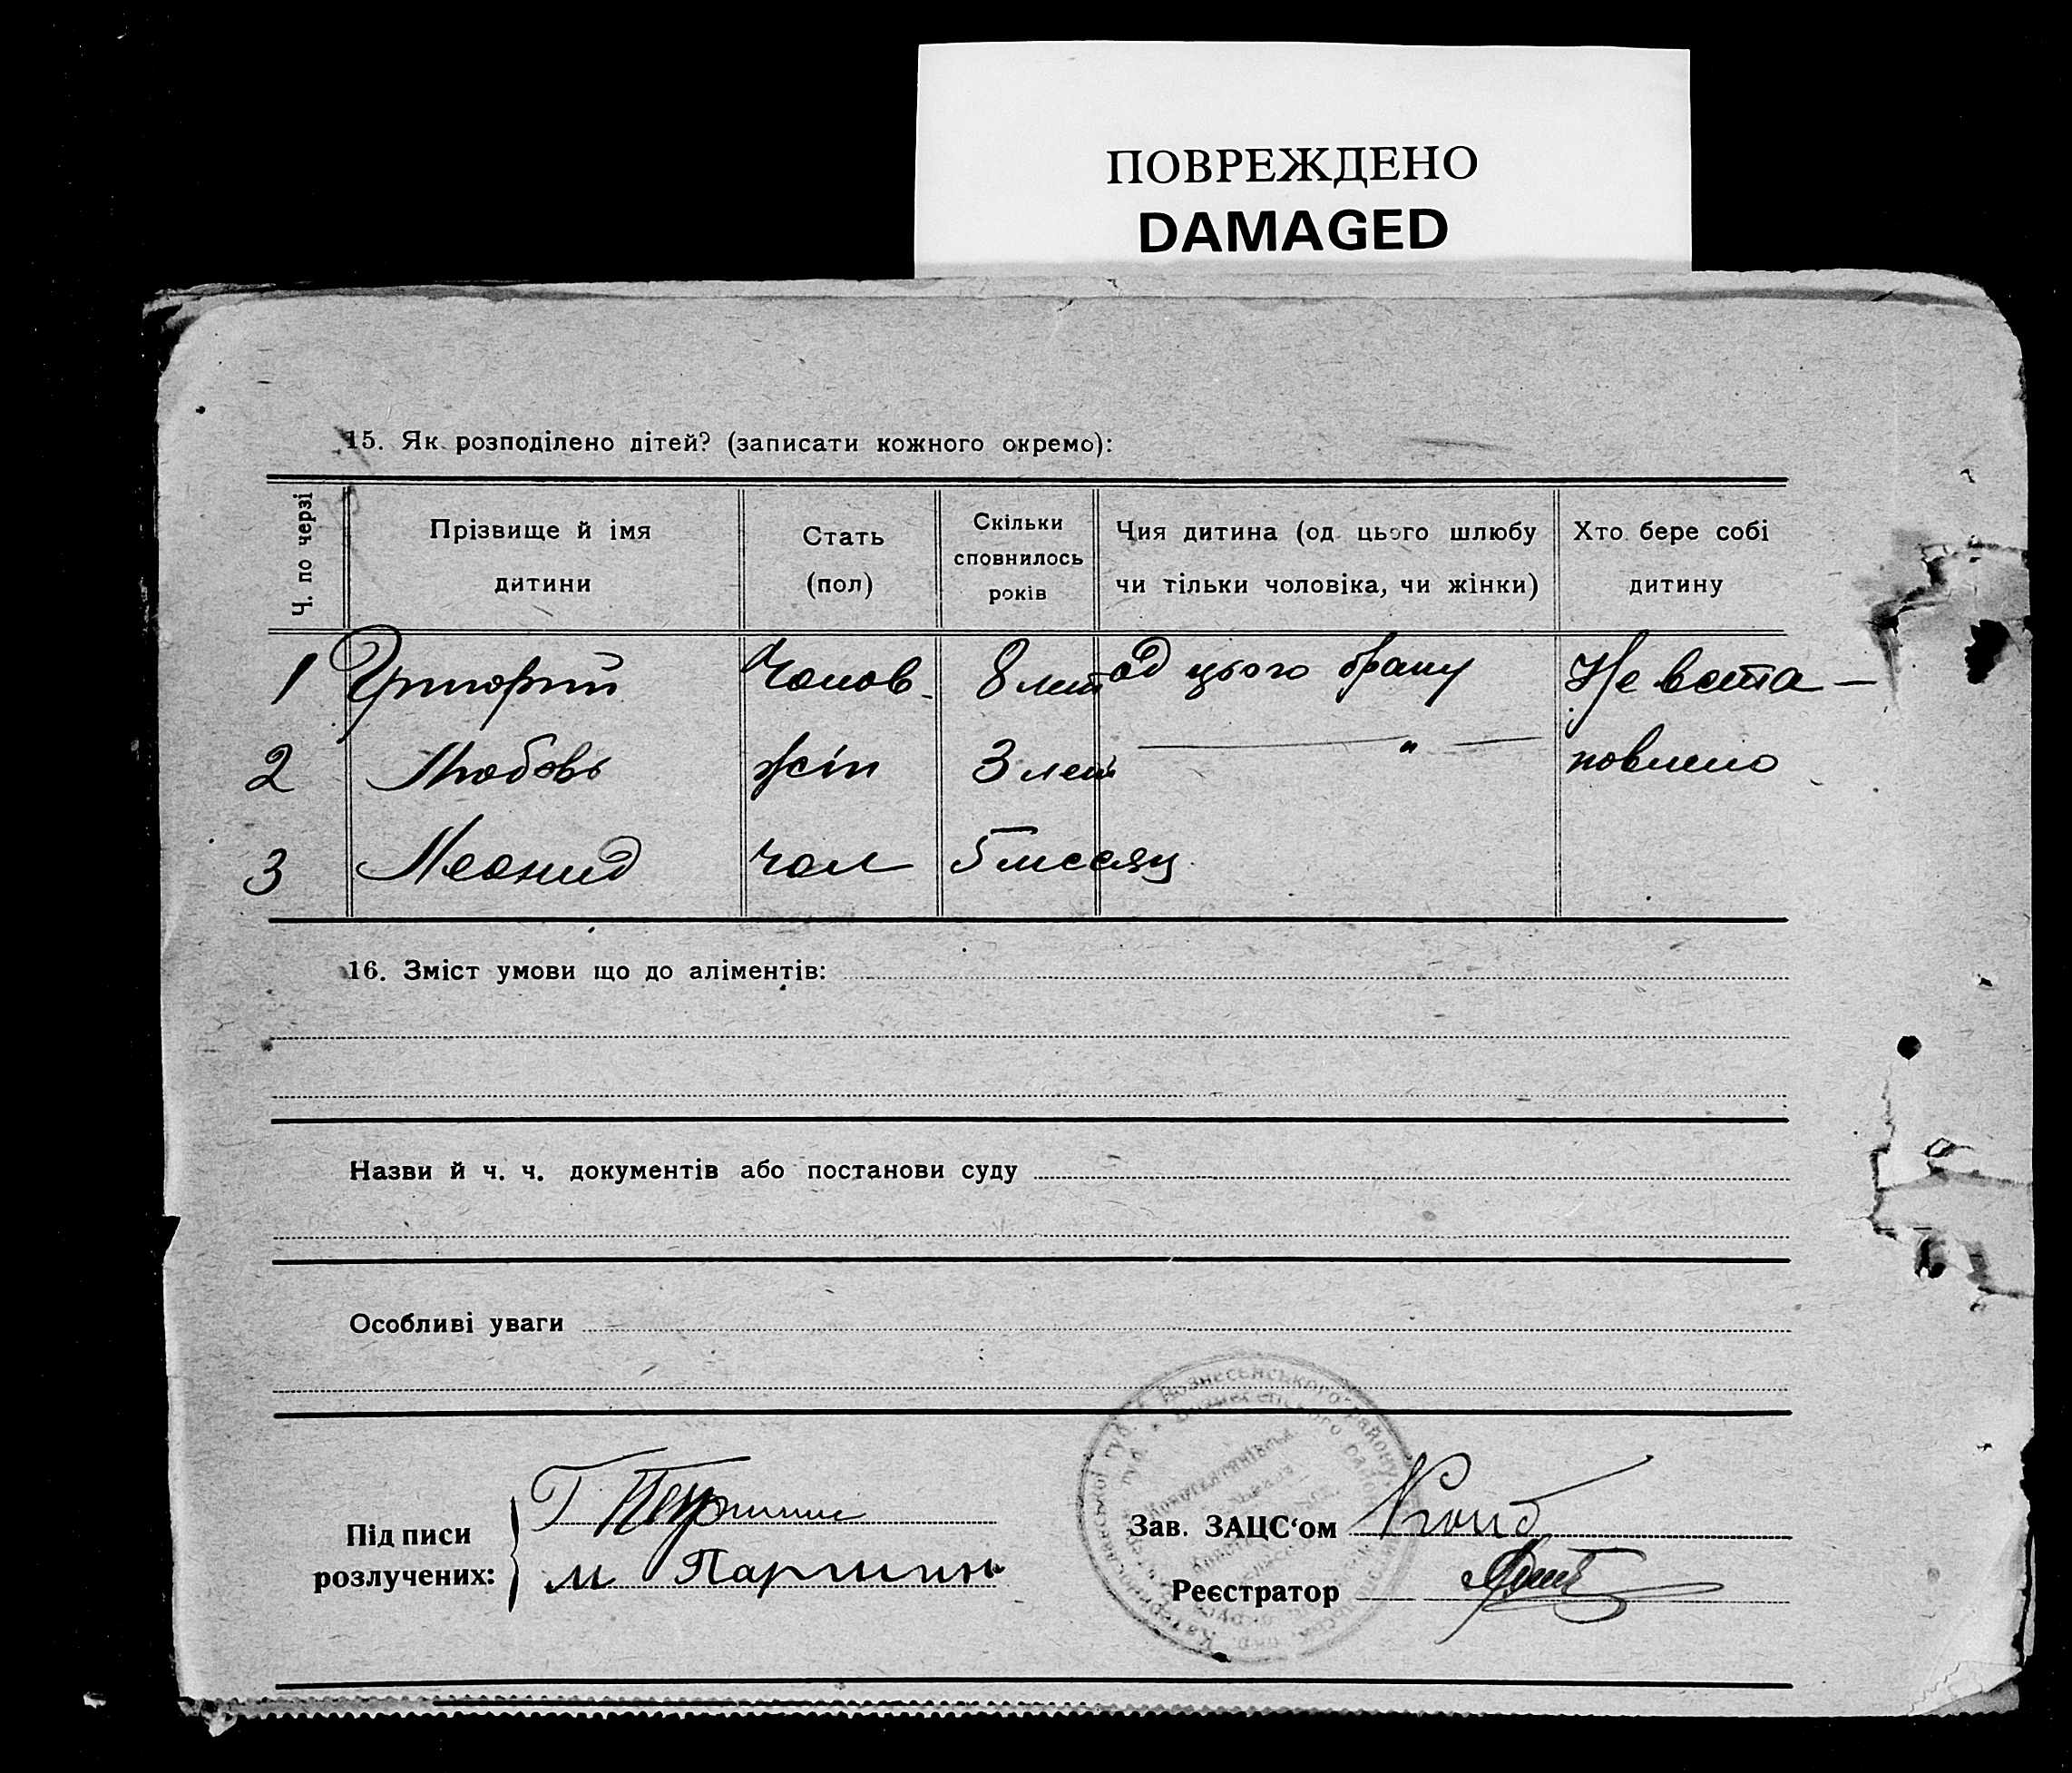 ПОВРЕЖДЕНО
DAMAGED
15. Як розподілено дітей? (записати кожного окремо):
Ч. по черзі
Прізвище й імя
дитини
Стать
(пол)
Скільки
сповнилось
років
Чия дитина (од цього шлюбу
чи тільки чоловіка, чи жінки)
Хто бере собі
дитину
1 Григорий Чолов. 8 лет од цього браку Не вста–
2 Любовь жін 3 лет — " — новлено
3 Леонид чол 5 месяц.
16. Зміст умови що до аліментів:
Назви й ч. ч. документів або постанови суду
Особливі уваги
Вознесенського району
Підписи
розлучених:
Г
М Паршин
Зав. ЗАЦС‘ом
Реєстратор